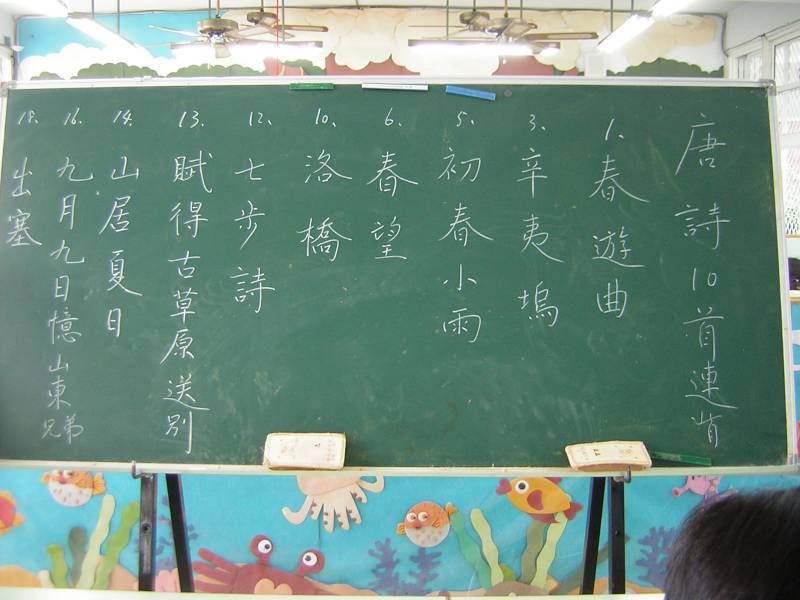 唐詩10首連背
1.春遊曲
3.辛夷塢
5.初春小雨
6.春望
10.洛橋
12.七步詩
13.賦得古草原送別
14.山居夏日
16.九月九日憶山東兄弟
18.出塞